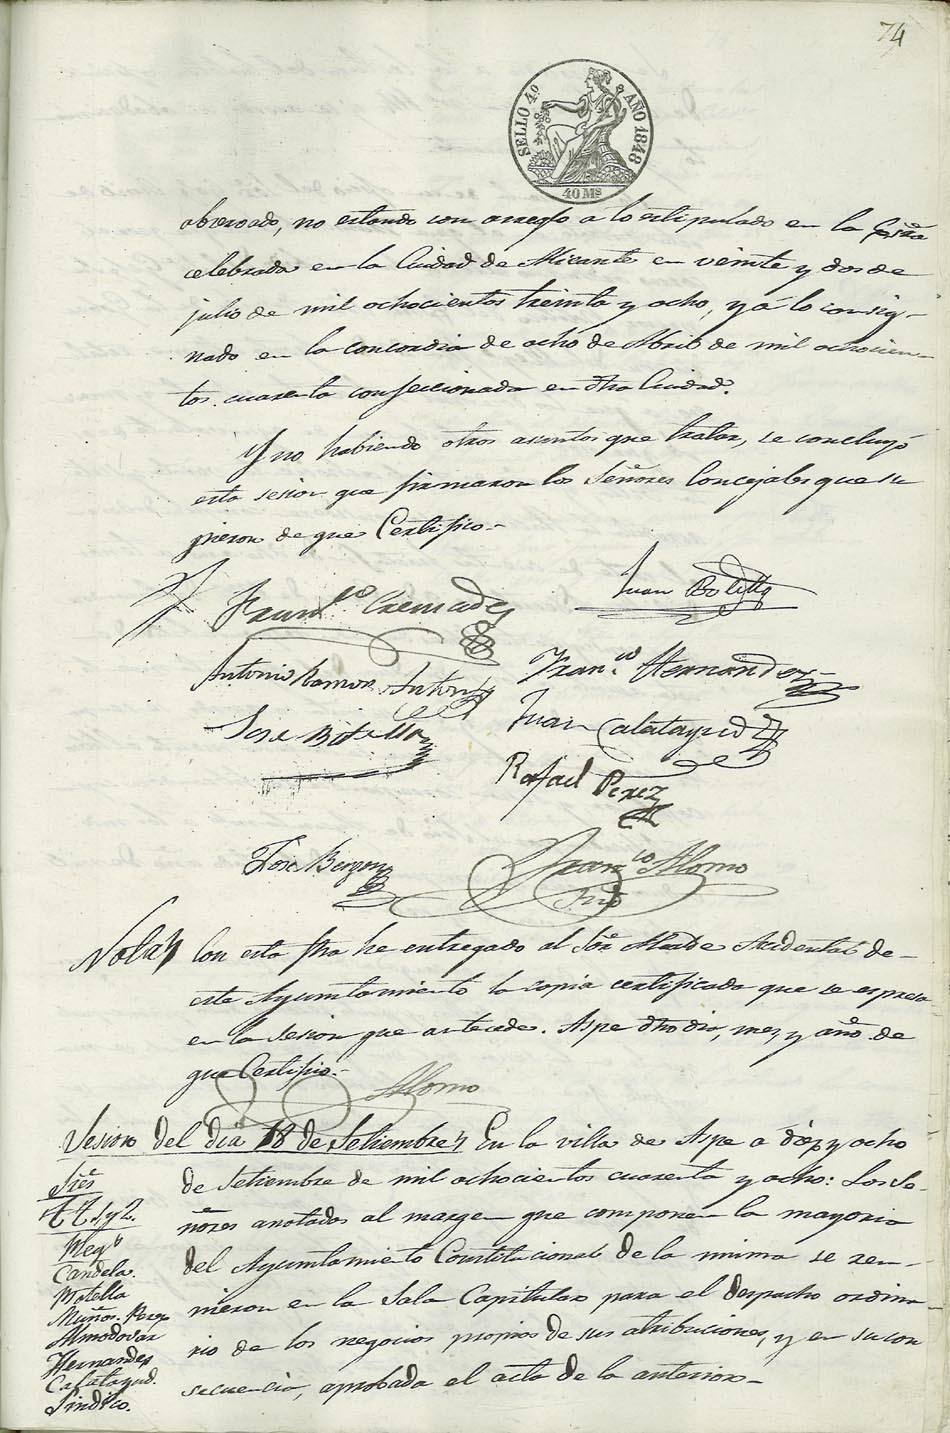 74
SELLO 4º AÑO 1848
40 Ms
observado, no estando con arreglo a lo estipulado en la
celebrada en la Ciudad de Alicante en veinte y dos de
julio de mil ochocientos treinta y ocho, y á lo consig-
nado en la concordia de ocho de Abril de mil ochocien-
tos cuarenta confeccionada en dha Ciudad.
Y no habiendo otros asuntos que tratar, se concluyó
esta sesion que firmaron los Señores Concejales que su
pieron de que Certifico.-
Franco Cremades
Juan Botella
Antonio Ramon Anton
Franco Hernandez
José Botella
Juan Calatayud
Rafael Perez
José Berzon
Franco Alorno
Srio
Nota
Con esta fha he entregado al Sor Alcalde Accidental de
este Ayuntamiento la copia certificada que se espresa
en la Sesion que antecede. Aspe dho dia, mes, y año de
que Certifico.-
Alorno
Sesion del dia 18 de Setiembre
En la villa de Aspe a diez y ocho
Sres
de Setiembre de mil ochocientos cuarenta y ocho: Los Se-
TT. 1 y 2.
ñores anotados al margen que componen la mayoria
Candela.
del Ayuntamiento Constitucional de la misma se reu-
Botella
Muños. Perez
nieron en la Sala Capitular para el despacho ordina-
Almodovar
rio de los negocios propios de sus atribuciones, y en su con
Hernandez
Calatayud.
secuencia, aprobada el acta de la anterior-
Sindico.